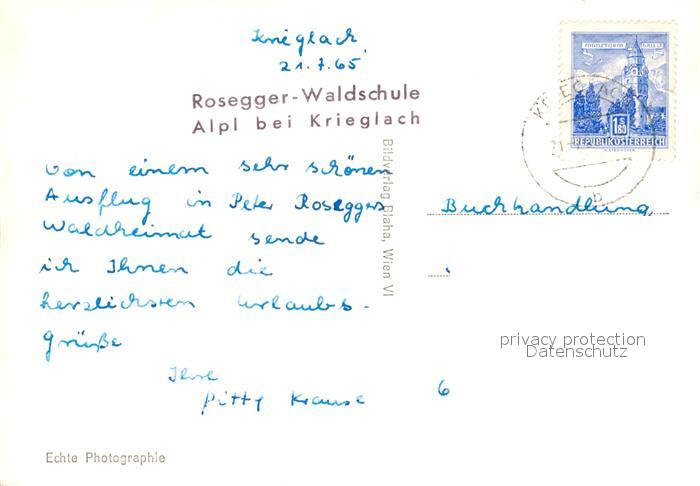 Krieglach,
21.7.65
Rosegger-Waldschule
Alpl bei Krieglach
von einem sehr schönen
Ausflug in Peter Roseggers
Waldheimat sende
ich Ihnen die
herzlichsten Urlaubs-
grüße
Ihre
Pitty Krause
Echte Photographie
Bildverlag Blaha, Wien VI
MÜNZTURM HALL I/T
S 1.80
REPUBLIK ÖSTERREICH
KRIEGLACH
Buchhandlung,
privacy protection
Datenschutz
6